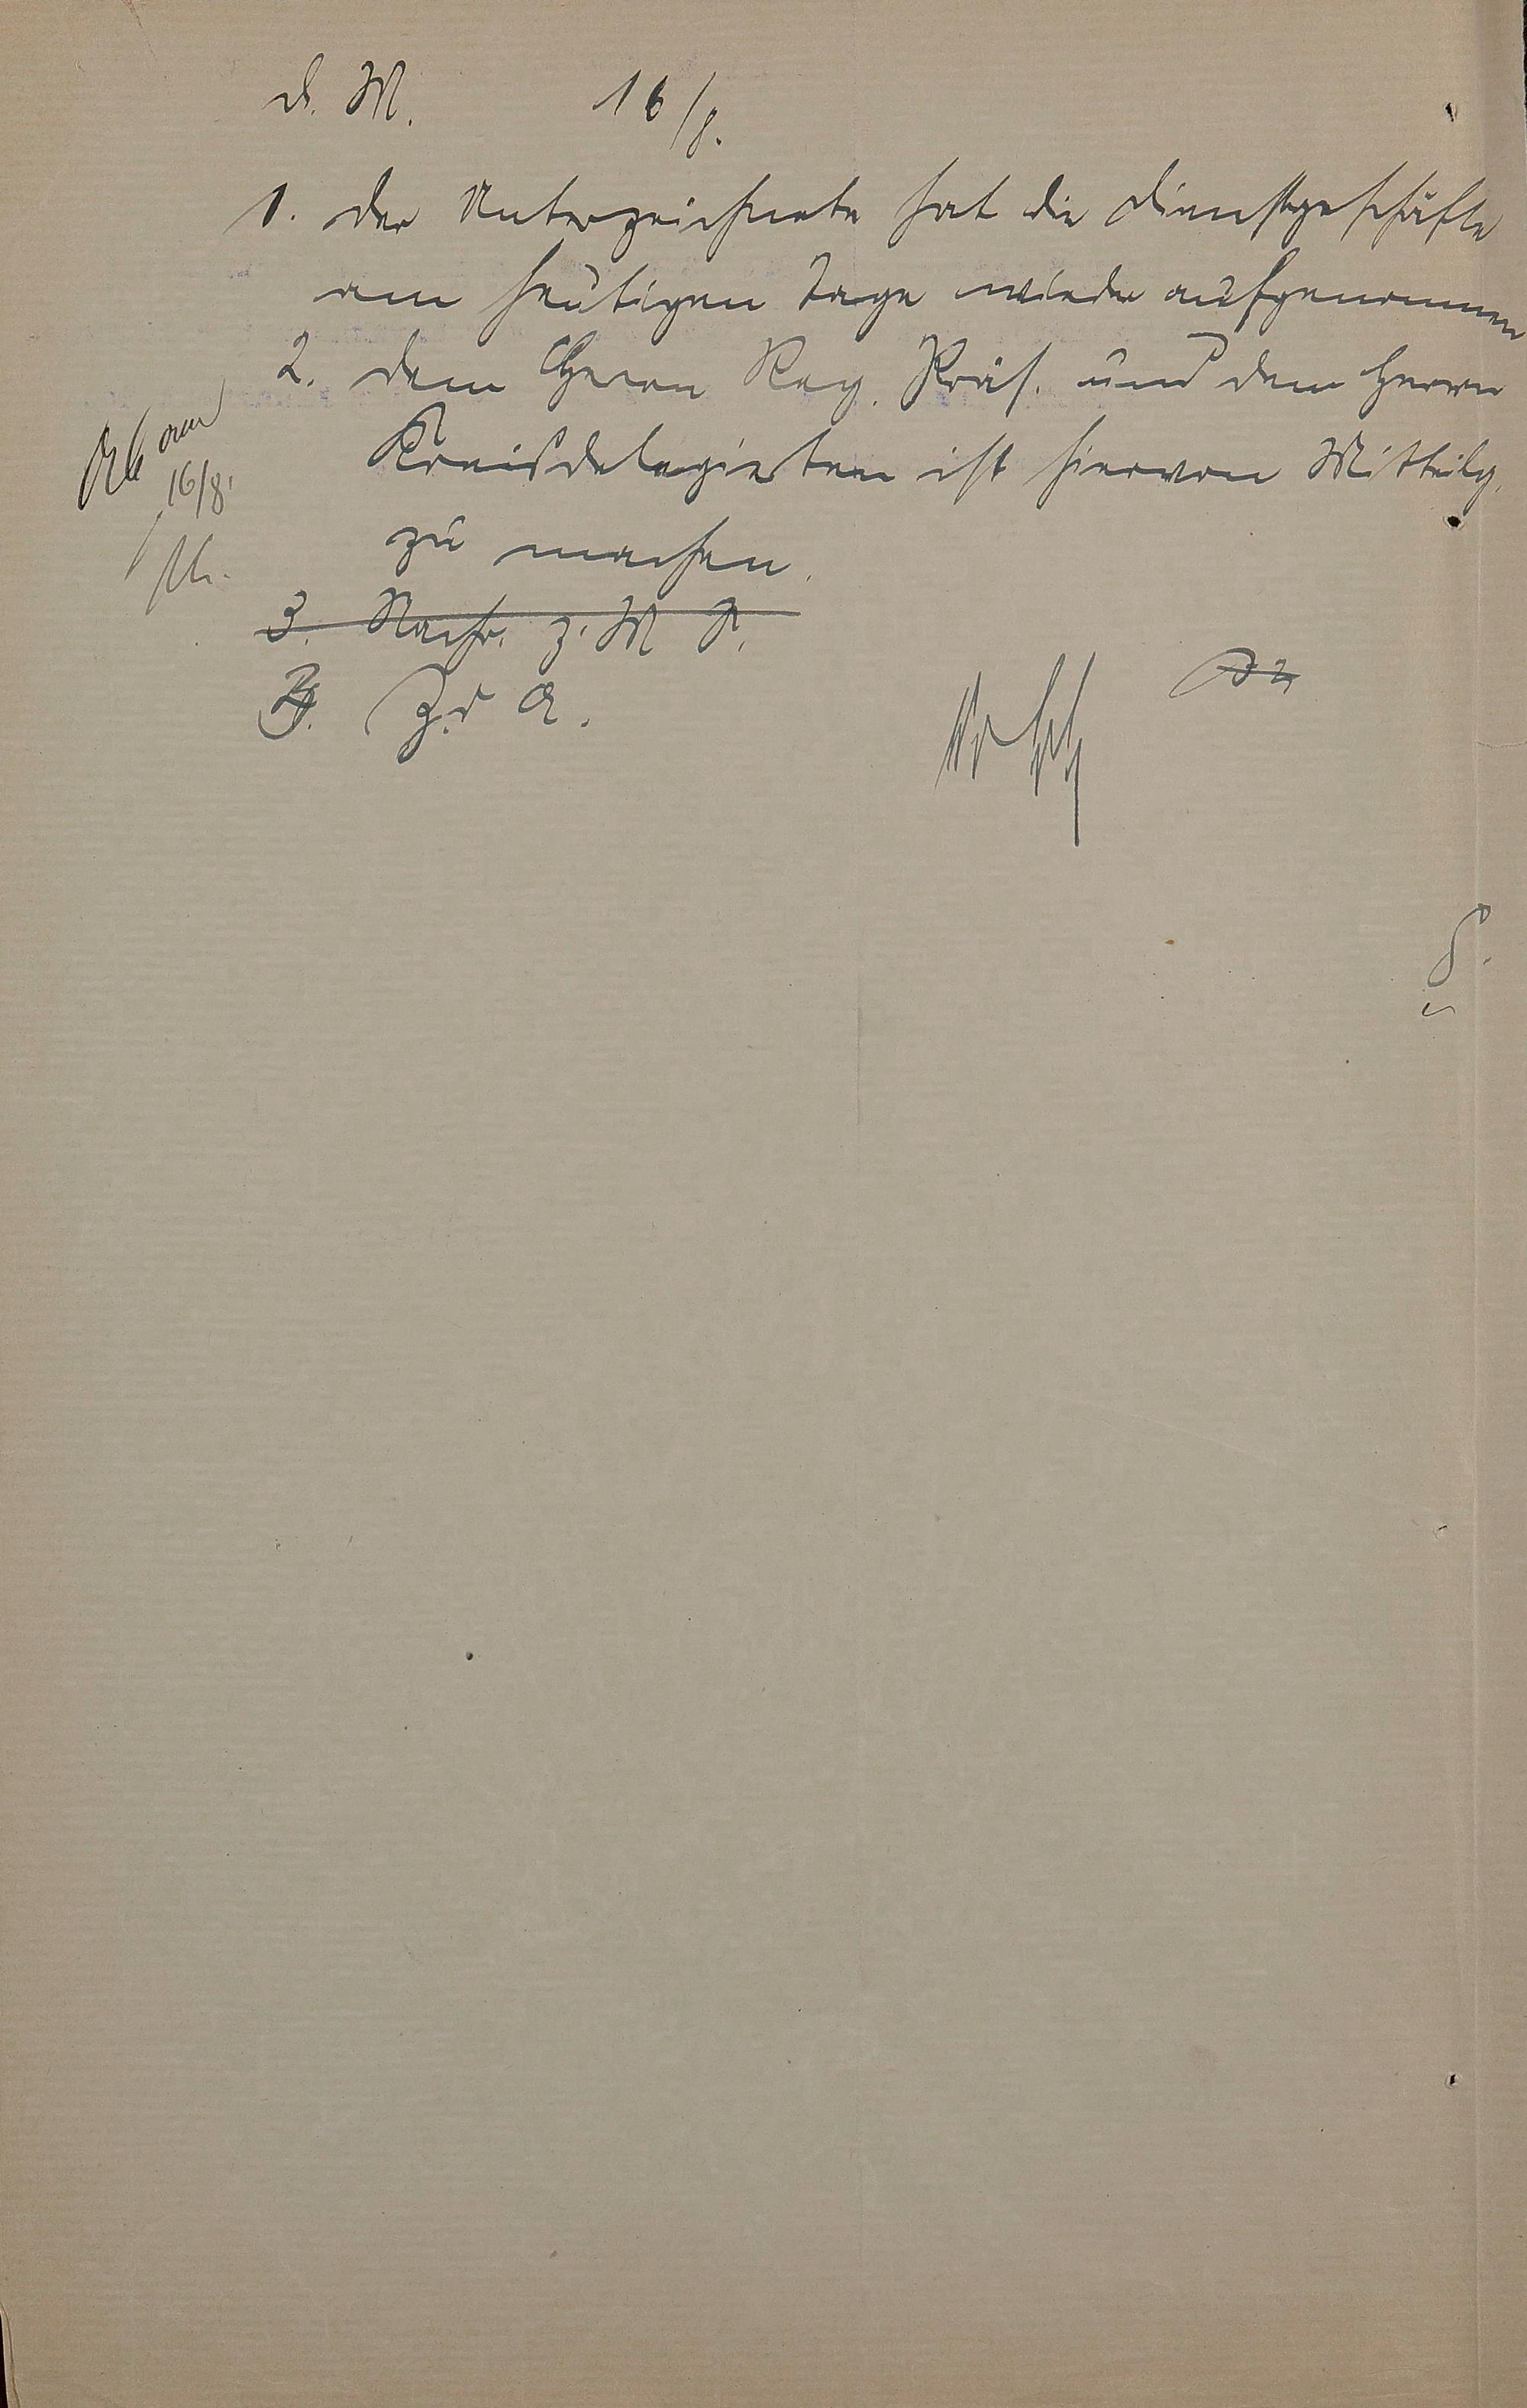 d. M. 16/8.
1. Der Unterzeichnete hat die Dienstgeschäfte
am heutigen Tage wieder aufgenommen
2. Dem Herrn Reg. Präs. und dem Herrn
Kreisdelegierten ist hiervon Mitteilg.
zu machen.
16/8.
3. Nachr. z. M
3. Z. d A.